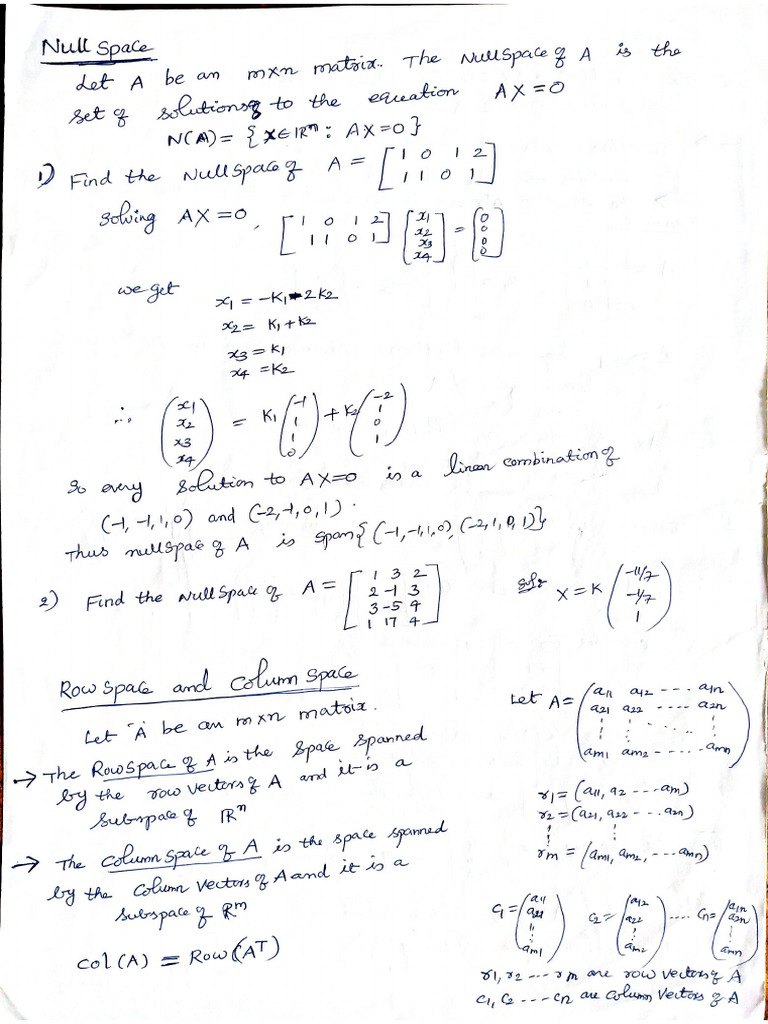 Null Space
Let A be an mxn matrix. The Nullspace of A is the
set of solutions to the equation AX=0
N(A) = {X∈IRⁿ : AX=0}
1) Find the Nullspace of A = [1 0 1 2
1 1 0 1]
Solving AX=0, [1 0 1 2
1 1 0 1] (x1 x2 x3 x4) = (0 0 0 0)
we get
x1 = -K1-2K2
x2 = K1+K2
x3 = K1
x4 = K2
∴ (x1 x2 x3 x4) = K1(-1 1 1 0) + K2(-2 1 0 1)
So every solution to AX=0 is a linear combination of
(-1, -1, 1, 0) and (-2, -1, 0, 1).
Thus nullspace of A is span{(-1,-1,1,0), (-2,1,0,1)}
2) Find the Nullspace of A = [1 3 2
2 -1 3
3 -5 4
1 17 4]
Soln X = K (-11/7 -1/7 1)
Row space and Column space
Let A be an mxn matrix.
→ The Rowspace of A is the Space spanned
by the row vectors of A and it is a
subspace of IRⁿ
→ The Column space of A is the space spanned
by the Column vectors of A and it is a
subspace of IRᵐ
Col(A) = Row(Aᵀ)
Let A = (a11 a12 ---- a1n
a21 a22 ---- a2n
am1 am2 ---- amn)
r1 = (a11, a2 --- am)
r2 = (a21, a22 --- a2n)
rm = (am1, am2, --- amn)
C1 = (a11 a21 ⋮ am1) C2 = (a12 a22 ⋮ am2) ---- Cn = (a1n a2n ⋮ amn)
r1, r2 --- rm are row vectors of A
C1, C2 ---- Cn are Column Vectors of A